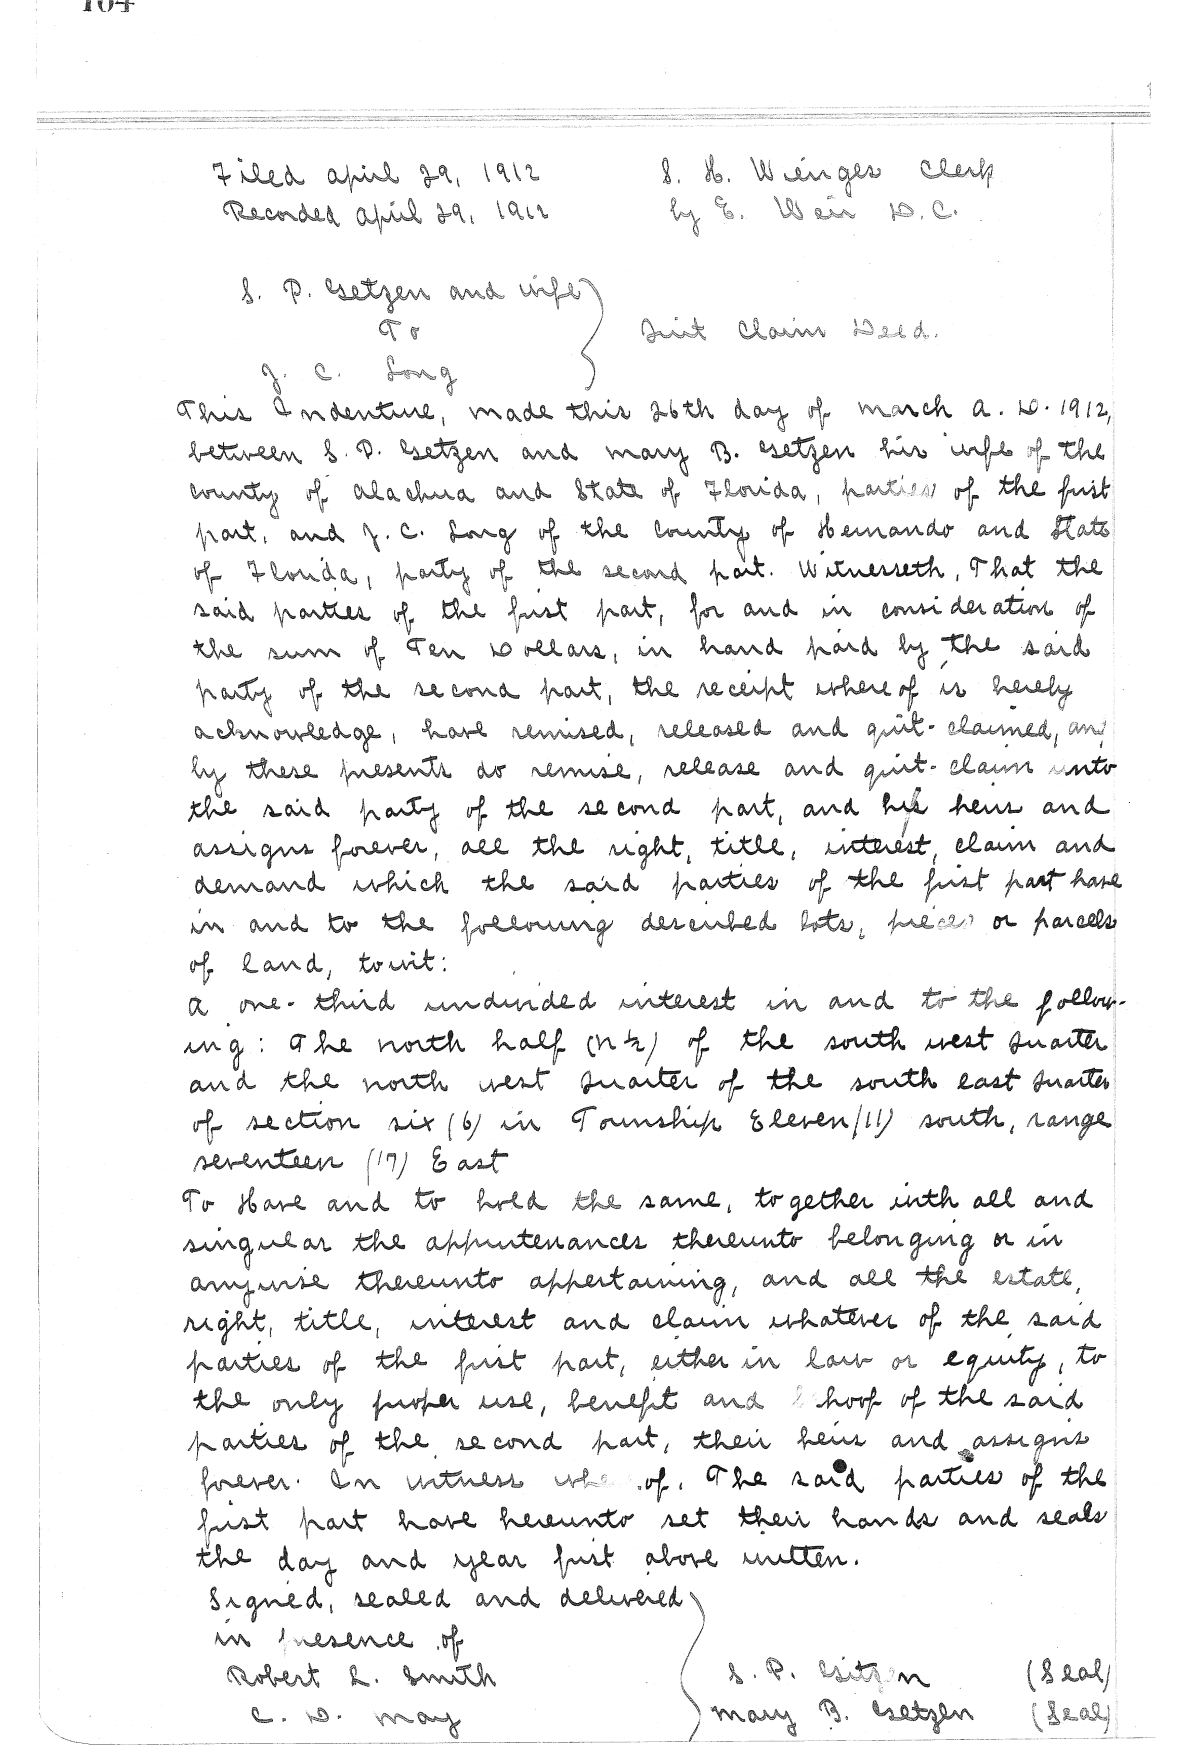 104
Filed April 29, 1912 S. H. Wienges Clerk
Recorded April 29, 1912 by E. Weir D.C.
S. P. Getzen and wife
To Quit Claim Deed.
J. C. Long
This Indenture, made this 26th day of March A. D. 1912,
between S. P. Getzen and Mary B. Getzen his wife of the
County of Alachua and State of Florida, parties of the first
part, and J. C. Long of the County of Hernando and State
of Florida, party of the second part. Witnesseth, That the
said parties of the first part, for and in consideration of
the sum of Ten Dollars, in hand paid by the said
party of the second part, the receipt whereof is hereby
acknowledge, have remised, released and quit-claimed, and
by these presents do remise, release and quit-claim unto
the said party of the second part, and his heirs and
assigns forever, all the right, title, interest, claim and
demand which the said parties of the first part have
in and to the following described lots, pieces or parcels
of land, towit:
A one-third undivided interest in and to the follow-
ing: The north half (N½) of the south west quarter
and the north west quarter of the south east quarter
of section six (6) in Township Eleven (11) south, range
seventeen (17) East
To Have and to hold the same, together with all and
singular the appurtenances thereunto belonging or in
anywise thereunto appertaining, and all the estate,
right, title, interest and claim whatever of the said
parties of the first part, either in law or equity, to
the only proper use, benefit and behoof of the said
parties of the second part, their heirs and assigns
forever. In witness whereof, The said parties of the
first part have hereunto set their hands and seals
the day and year first above written.
Signed, sealed and delivered
in presence of
Robert L. Smith S. P. Getzen (Seal)
C. D. May Mary B. Getzen (Seal)